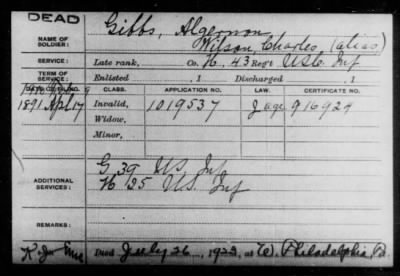 DEAD
NAME OF SOLDIER: Gibbs, Algernon
Wilson, Charles, (alias)
SERVICE: Late rank, Co. H, 43 Reg't U.S.C. Inf
TERM OF SERVICE: Enlisted , 1 Discharged , 1
DATE OF FILING. CLASS. APPLICATION NO. LAW. CERTIFICATE NO.
1891 Apl 17 Invalid, 1019537 J 916929
Widow,
Minor,
ADDITIONAL SERVICES: G 39 U.S. Inf
H 25 U.S. Inf
Died July 26, 1923, at W. Philadelphia, Pa.